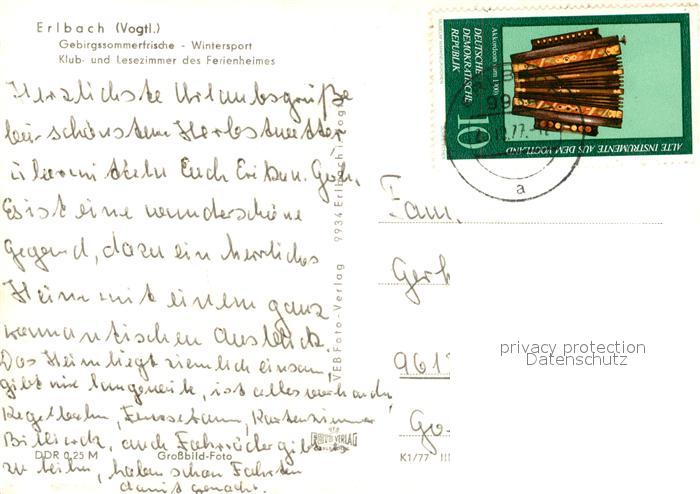 Erlbach (Vogtl.)
Gebirgssommerfrische - Wintersport
Klub- und Lesezimmer des Ferienheimes
Herzlichste Urlaubsgrüße
bei schönstem Herbstwetter
übermitteln Euch
Es ist eine wunderschöne
Gegend, dazu ein herrliches
Heim mit einem ganz
romantischen Ausblick
Das Heim liegt ziemlich einsam
gibt nie langeweile, ist alles vorhanden
Kegelbahn, Fernsehraum, Kartenzimmer
Billiard, auch Fahrräder gibt es
zu leihn, haben schon Fahrten
damit gemacht.
DDR 0,25 M
Großbild-Foto
VEB Foto-Verlag 9934 Erlbach i. Vogtl.
VERLAG
K1/77 III
DEUTSCHE
DEMOKRATISCHE
REPUBLIK
Akkordeon (um 1900)
10
ALTE INSTRUMENTE AUS DEM VOGTLAND
77
a
Fam.
Gerh
961
Go
privacy protection
Datenschutz